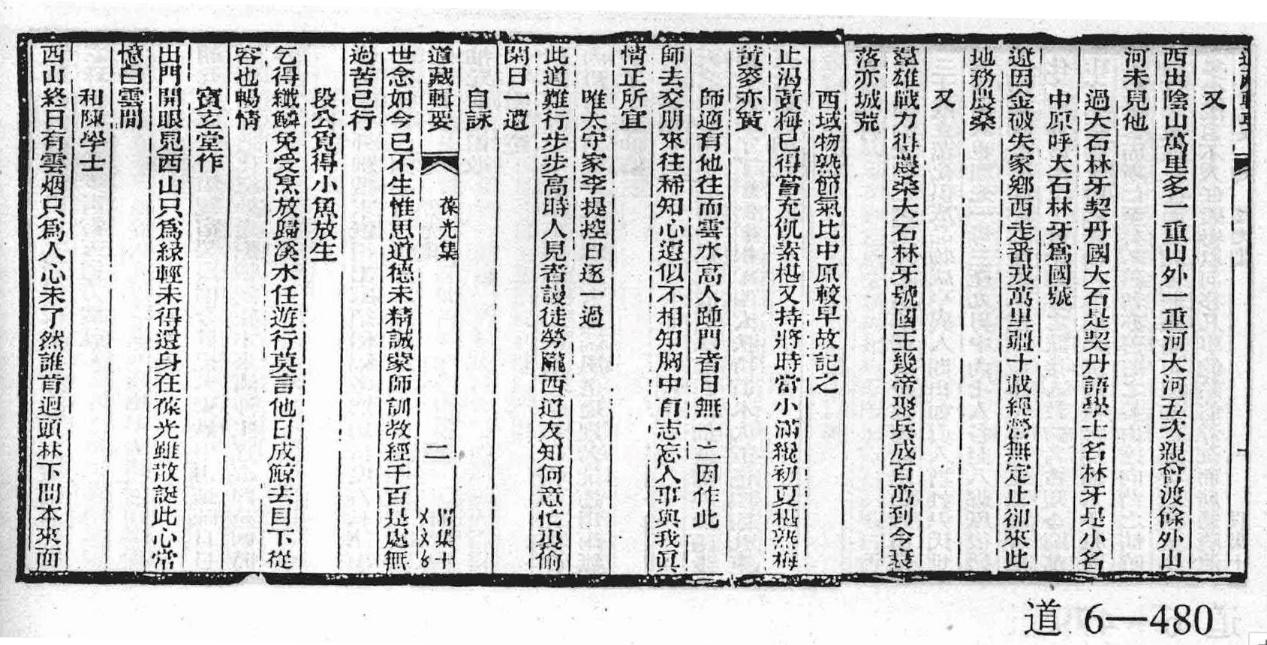 又
西出陰山萬里多一重山外一重河大河五次親曾渡餘外山
河未見他
過大石林牙契丹國大石是契丹語學士名林牙是小名
中原呼大石林牙爲國號
遼因金破失家鄉西走番戎萬里疆十載經營無定止卻來此
地務農桑
又
羣雄戰力得農桑大石林牙號國王幾帝聚兵成百萬到今衰
落亦城荒
西域物熟節氣比中原較早故記之
止渴黃梅已得嘗充飢素椹又持將時當小滿纔初夏椹熟梅
黃麥亦黃
師適有他往而雲水高人踵門者日無一二因作此
師去交朋來往稀知心還似不相知胸中有志忘人事與我眞
情正所宜
唯太守家李提控日逐一過
此道難行步步高時人見者謾徒勞隴西道友知何意忙裏偷
閑日一遭
自詠
道藏輯要 葆光集 二 胃集十
世念如今已不生惟思道德未精誠蒙師訓教經千百是處無
過苦已行
段公買得小魚放生
乞得纖鱗免受烹放歸溪水任遊行莫言他日成鯨去目下從
容也暢情
寶玄堂作
出門開眼見西山只爲緣輕未得還身在葆光雖散誕此心常
憶白雲閒
和陳學士
西山終日有雲烟只爲人心未了然誰肯迴頭林下問本來面
道 6—480